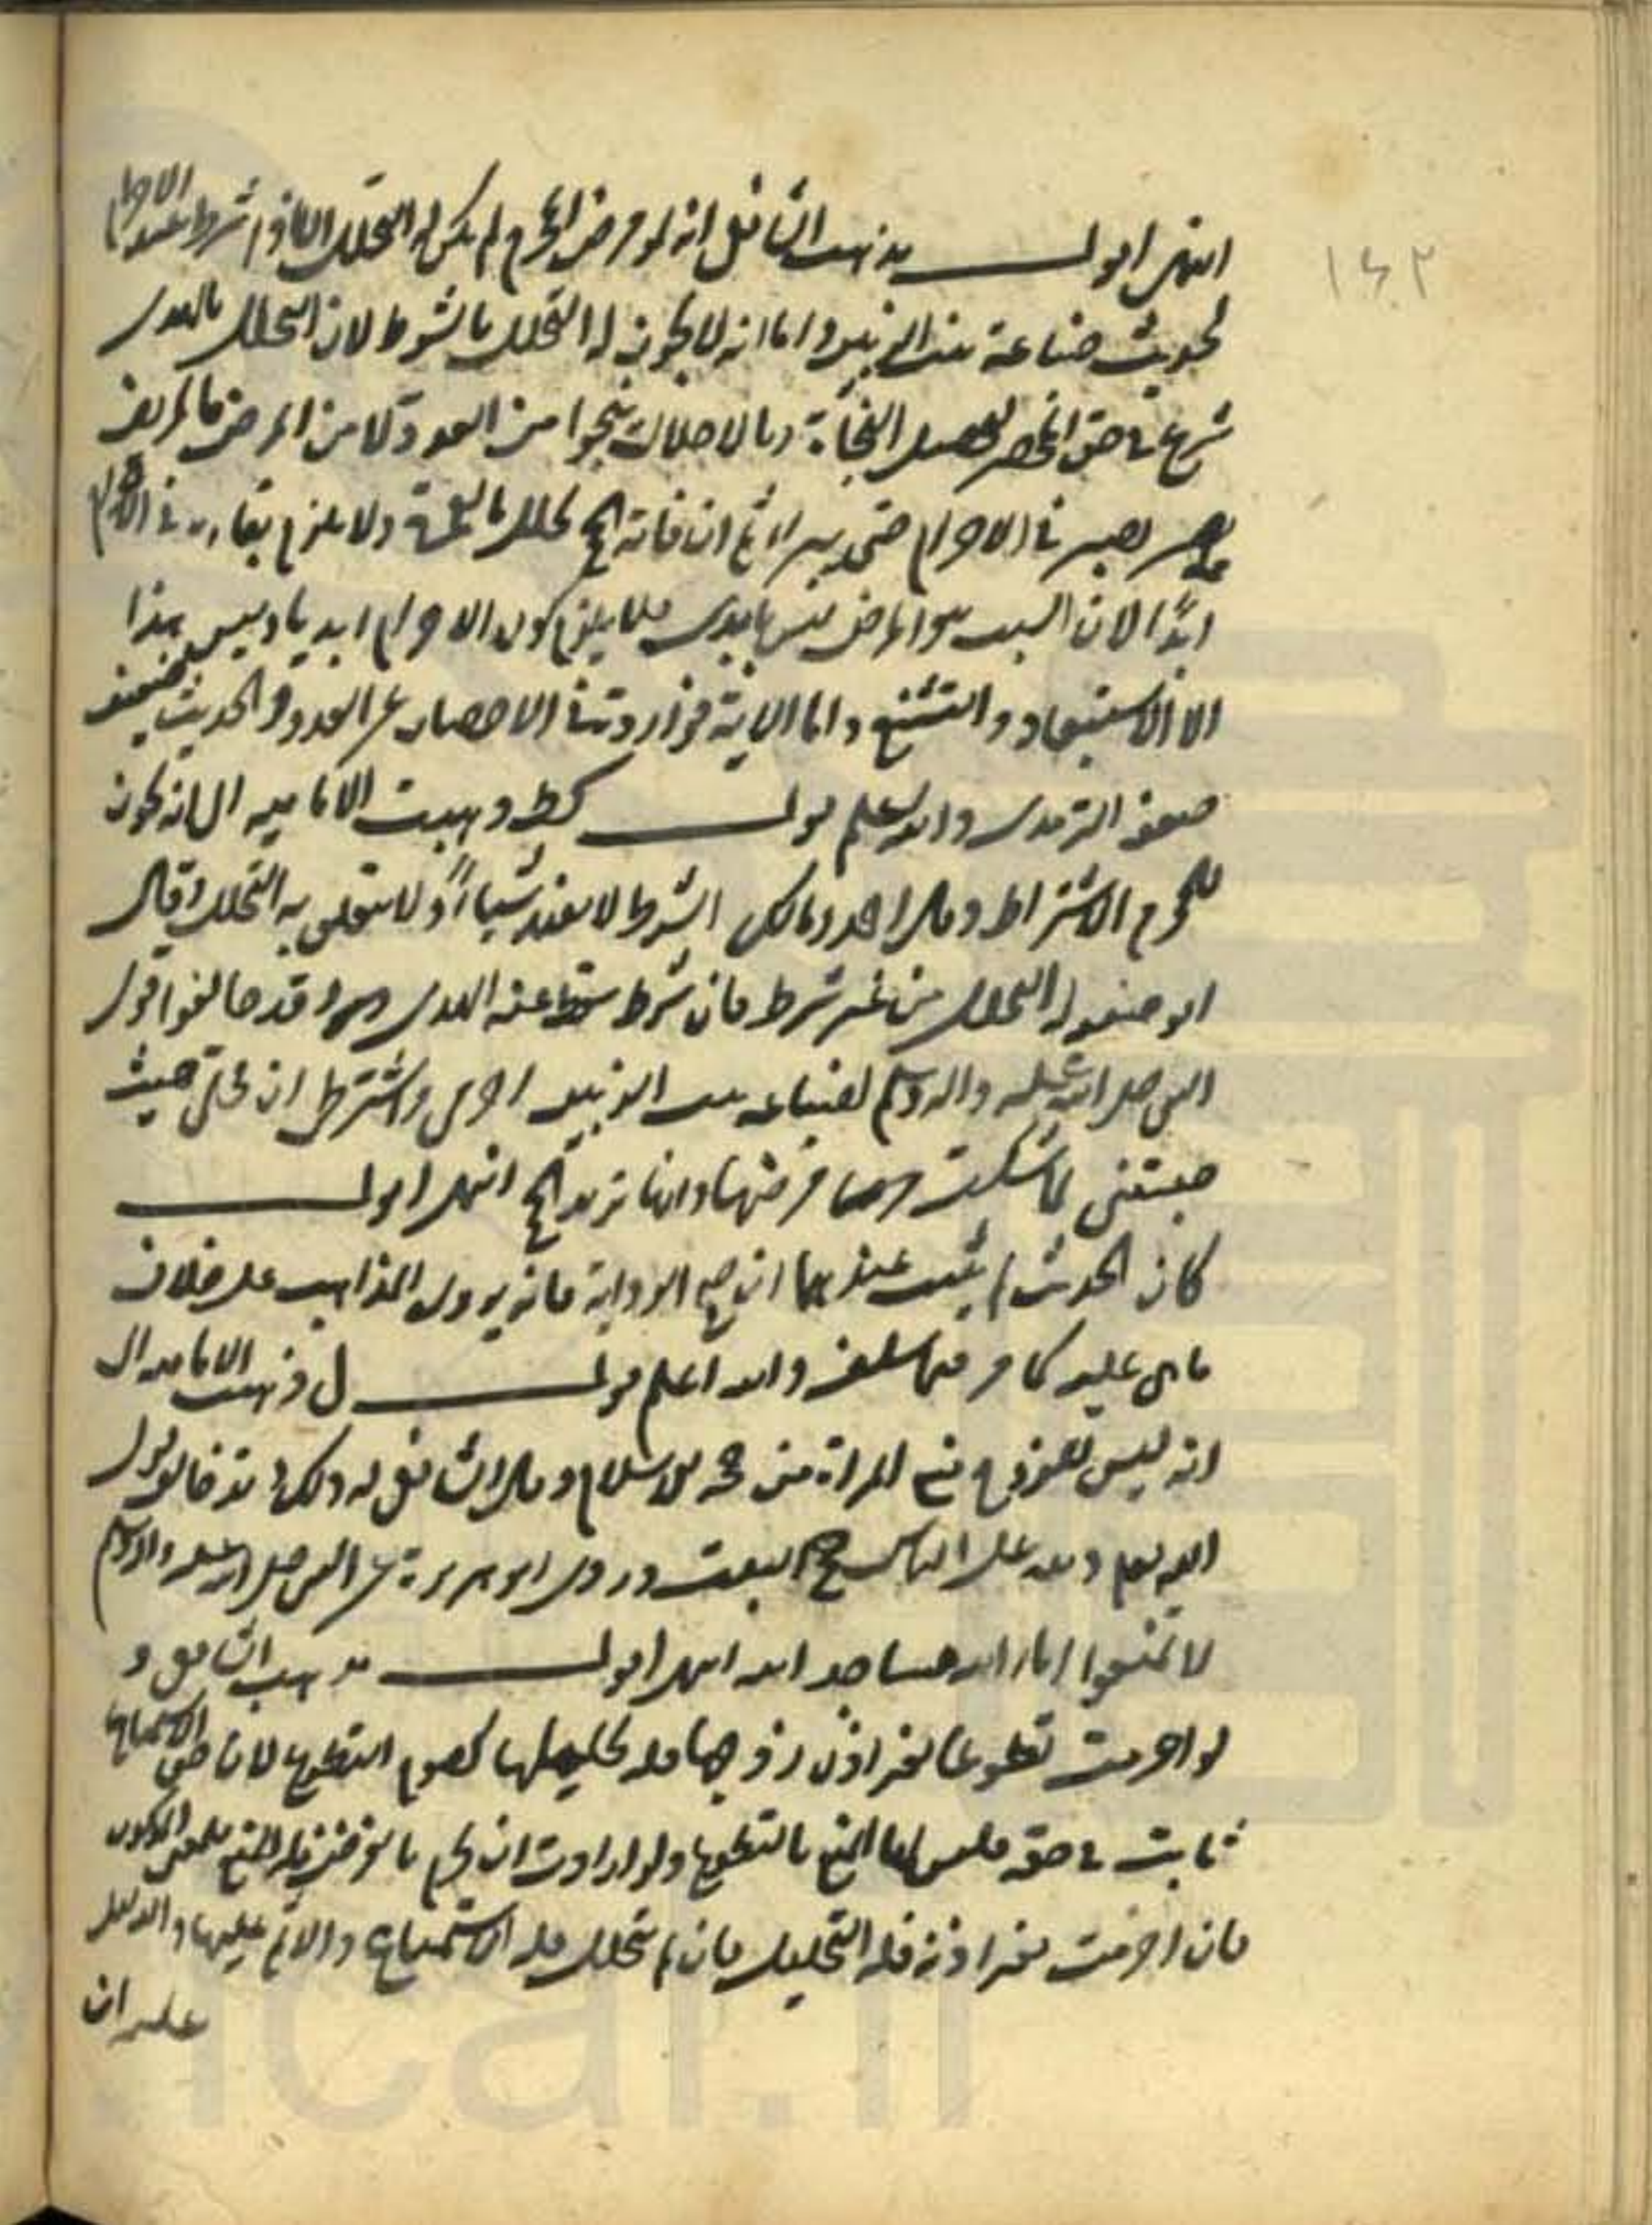 ١٤٢
انتهى اقول مذهب الشافعي انه لو مرض المحرم لم يكن له التحلل الا اذا شرط عند الاحرام
لحديث ضباعة بنت الزبير واما انه لا يكون له التحلل بالشرط لان التحلل بالهدى
شرع في حق المحصر لتحصيل النجاة وبالاحلال ينجوا من العدو لا من المرض فالمريض
يصبر في الاحرام حتى يبرا ثم ان فاته الحج تحلل بالعمرة ولا يلزم بقاءه في الاحرام
ابدًا لان السبب هو المرض ليس بابدى فلا يلزم كون الاحرام ابديا وليس هذا
الا الاستبعاد والتشنيع واما الاية فواردة في الاحصار عن العدو والحديث ضعيف
ضعفه الترمذى والله اعلم قول كط وذهبت الامامية الى انه يكون
للمحرم الاشتراط وقال احمد ومالك الشرط لا يفيد شيئا ولا يتعلق به التحلل وقال
ابو حنيفه له التحلل من غير شرط فان شرط سقط عنه الهدى وقد خالفوا قول
النبي صلى الله عليه واله وسلم لضباعه بنت الزبير احرمى واشترطى ان تحلى حيث
حبستنى لما شكت مرضها وانها تريد الحج انتهى اقول
كان الحديث لم يثبت عندهما ان صح الرواية فانه يروى المذاهب على خلاف
ما هي عليه كما مر فيما سلف والله اعلم قول ل وذهبت الامامية الى
انه ليس للزوج منع المراة من حجة الاسلام وقال الشافعي له ذلك وقد خالف قول
الله تعالى ولله على الناس حج البيت وروى ابو هريرة عن النبي صلى الله عليه واله وسلم
لا تمنعوا اماء الله مساجد الله انتهى اقول مذهب الشافعي
لو احرمت تطوعا بغير اذن زوجها فله تحليلها كصوم التطوع لان حق الاستمتاع
ثابت في حقه فليس لها المنع بالتطوع ولو ارادت ان تحرم بالفرض فله المنع للمعنى المذكور
فان احرمت بغير اذنه فله التحليل فان لم تتحلل فله الاستمتاع والاثم عليها والدليل
على ان